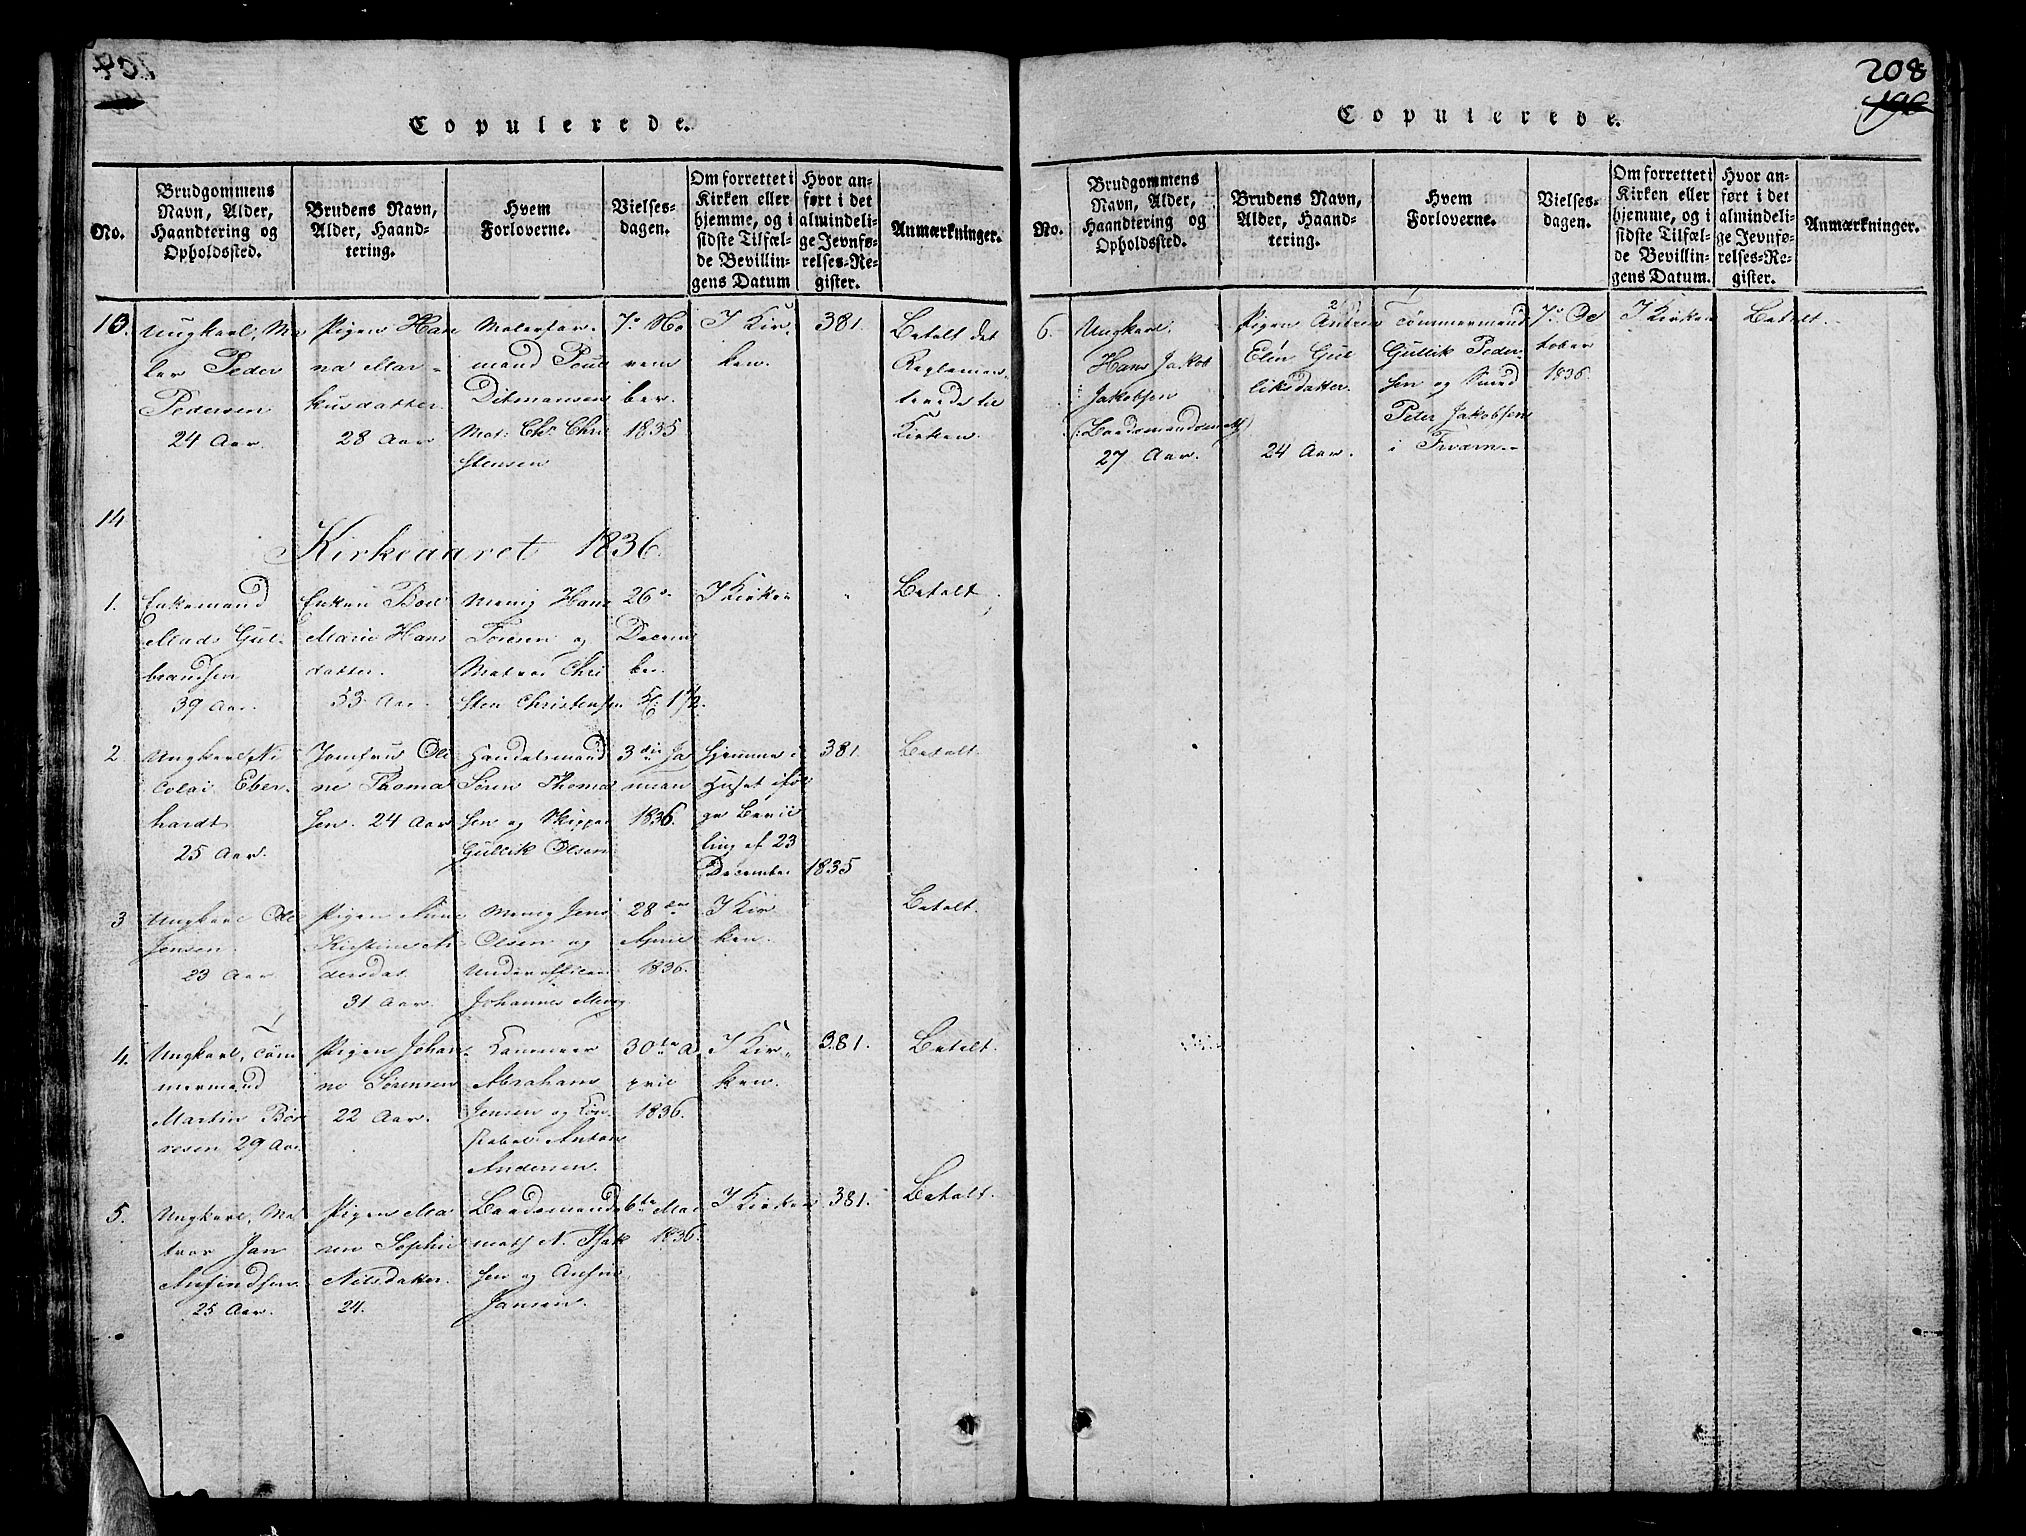 208
196
Copulerede.
No.
Brudgommens
Navn, Alder,
Haandtering og
Opholdssted.
Brudens Navn,
Alder, Haand-
tering.
Hvem
Forloverne.
Vielses-
dagen.
Om forrettet i
Kirken eller
hjemme, og i
sidste Tilfæl-
de Bevillin-
gens Datum
Hvor an-
ført i det
almindeli-
ge Jevnfø-
relses-Re-
gister.
Anmærkninger.
13.
Ungkarl, Ma
ler Peder
Pedersen
24 Aar.
Pigen Han
na Mar-
kusdatter.
28 Aar
mand Poul
Ditmansen
Mat: Chr. Chri
stensen
7de No
vem
ber.
1835
I Kir-
ken.
381.
Betalt det
Reglemen-
terede til
Kirken.
14
Kirkeaaret 1836.
1.
Enkemand
Mads Gul-
brandsen
39 Aar.
Enken Boel
Marie Hans
datter.
53 Aar.
Menig Hans
og
Matros Chri
sten Christensen
26de
Decem
ber.
I Kirken
"
Betalt
2
Ungkarl Ni
colai Eber-
hardt
25 Aar.
Jomfru Oli
ne Thoma
sen. 24 Aar
Handelsmand
Søren Thoma
sen og Skipper
Gullik Olsen
3die Ja
nuari
1836.
Hjemme i
Huset iføl
ge Bevil
ling af 23
December 1835
381.
Betalt.
3
Ungkarl Ole
Jensen.
23 Aar
Pigen Anne
Kirstine An
dersdat.
31 Aar.
Menig Jens
Olsen og
Underofficer
Johannes Meng
28de
April
1836.
I Kir
ken.
Betalt.
4.
Ungkarl, Tøm
mermand
Martin Bør
resen 29 Aar
Pigen Johan-
ne Sørensen
22 Aar.
Kanoneer
Abraham
Jensen og Kon
stabel Anton
Andersen.
30te A
pril
1836.
I Kir-
ken.
381.
Betalt.
5.
Ungkarl, Ma
tros Jan
Anfindsen
25 Aar.
Pigen Ma
ren Sophie
Nilsdatter.
24.
Baadsmands
math N. Isak
sen og Anfin
Jansen.
6te Mai
1836.
I Kirken
381.
Betalt.
Copulerede.
No.
Brudgommens
Navn, Alder,
Haandtering og
Opholdssted.
Brudens Navn,
Alder, Haand-
tering.
Hvem
Forloverne.
Vielses-
dagen.
Om forrettet i
Kirken eller
hjemme, og i
sidste Tilfæl-
de Bevillin-
gens Datum.
Hvor an-
ført i det
almindeli-
ge Jevnfø-
relses-Re-
gister.
Anmærkninger.
6.
Ungkarl
Hans Jakob
Jakobsen
(: Baadsmandsmath)
27 Aar.
Pigen Andrea
Elen Gul
liksdatter.
24 Aar.
Tømmermand
Gullik Peder-
sen og Smed
Peter Jakobsen
i Tværn
7de Oc
tober
1836.
I Kirken
Betalt.